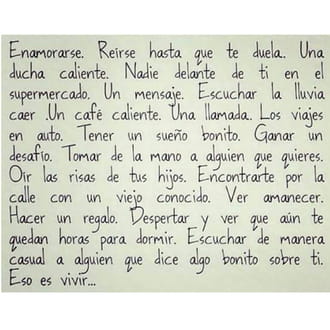 Enamorarse. Reírse hasta que te duela. Una
ducha caliente. Nadie delante de ti en el
supermercado. Un mensaje. Escuchar la lluvia
caer .Un café caliente. Una llamada. Los viajes
en auto. Tener un sueño bonito. Ganar un
desafío. Tomar de la mano a alguien que quieres.
Oír las risas de tus hijos. Encontrarte por la
calle con un viejo conocido. Ver amanecer.
Hacer un regalo. Despertar y ver que aún te
quedan horas para dormir. Escuchar de manera
casual a alguien que dice algo bonito sobre ti.
Eso es vivir...